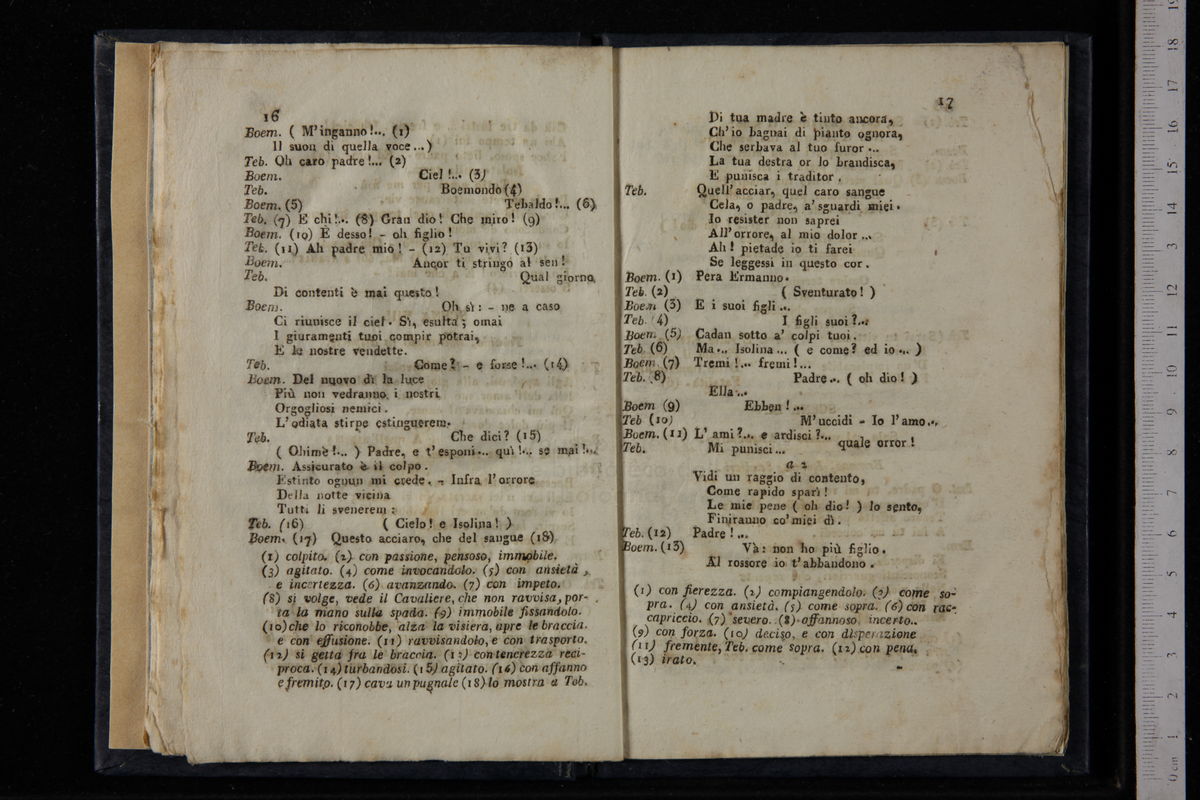 16
Boem. ( M'inganno!... (1)
Il suon di quella voce...)
Teb. Oh caro padre!... (2)
Boem. Ciel!... (3)
Teb. Boemondo (4)
Boem. (5) Tebaldo!... (6)
Teb. (7) E chi!... (8) Gran dio! Che miro! (9)
Boem. (10) E desso! - oh figlio!
Teb. (11) Ah padre mio! - (12) Tu vivi? (13)
Boem. Ancor ti stringo al sen!
Teb. Qual giorno
Di contenti è mai questo!
Boem. Oh sì: - ne a caso
Ci riunisce il ciel. Sì, esulta; omai
I giuramenti tuoi compir potrai,
E le nostre vendette.
Teb. Come? - e forse!... (14)
Boem. Del nuovo dì la luce
Più non vedranno i nostri
Orgogliosi nemici.
L'odiata stirpe estinguerem.
Teb. Che dici? (15)
( Ohimè!... ) Padre, e t'esponi... quì!... se mai!...
Boem. Assicurato è il colpo.
Estinto ognun mi crede. - Infra l'orrore
Della notte vicina
Tutti li svenerem:
Teb. (16) ( Cielo! e Isolina! )
Boem. (17) Questo acciaro, che del sangue (18)
(1) colpito. (2) con passione, pensoso, immobile.
(3) agitato. (4) come invocandolo. (5) con ansietà,
e incertezza. (6) avanzando. (7) con impeto.
(8) si volge, vede il Cavaliere, che non ravvisa, por-
ta la mano sulla spada. (9) immobile fissandolo.
(10) che lo riconobbe, alza la visiera, apre le braccia.
e con effusione. (11) ravvisandolo, e con trasporto.
(12) si getta fra le braccia. (13) con tenerezza reci-
proca. (14) turbandosi. (15) agitato. (16) con affanno
e fremito. (17) cava un pugnale (18) lo mostra a Teb.
17
Di tua madre è tinto ancora,
Ch'io bagnai di pianto ognora,
Che serbava al tuo furor...
La tua destra or lo brandisca,
E punisca i traditor.
Teb. Quell'acciar, quel caro sangue
Cela, o padre, a'sguardi miei.
Io resister non saprei
All'orrore, al mio dolor...
Ah! pietade io ti farei
Se leggessi in questo cor.
Boem. (1) Pera Ermanno.
Teb. (2) ( Sventurato! )
Boem (3) E i suoi figli...
Teb. 4) I figli suoi?...
Boem (5) Cadan sotto a' colpi tuoi.
Teb. (6) Ma... Isolina... ( e come? ed io... )
Boem (7) Tremi!... fremi!...
Teb. (8) Padre... ( oh dio! )
Ella...
Boem (9) Ebben!...
Teb (10) M'uccidi - Io l'amo...
Boem. (11) L' ami?... e ardisci?...
Teb. Mi punisci... quale orror!
a 2
Vidi un raggio di contento,
Come rapido sparì!
Le mie pene ( oh dio! ) lo sento,
Finiranno co'miei dì.
Teb. (12) Padre!...
Boem. (13) Và: non ho più figlio.
Al rossore io t'abbandono.
(1) con fierezza. (2) compiangendolo. (3) come so-
pra. (4) con ansietà. (5) come sopra. (6) con rac-
capriccio. (7) severo. (8) offannoso, incerto..
(9) con forza. (10) deciso, e con disperazione
(11) fremente, Teb. come sopra. (12) con pena.
(13) irato.
0 cm 1 2 3 4 5 6 7 8 9 10 11 12 13 14 15 16 17 18 19